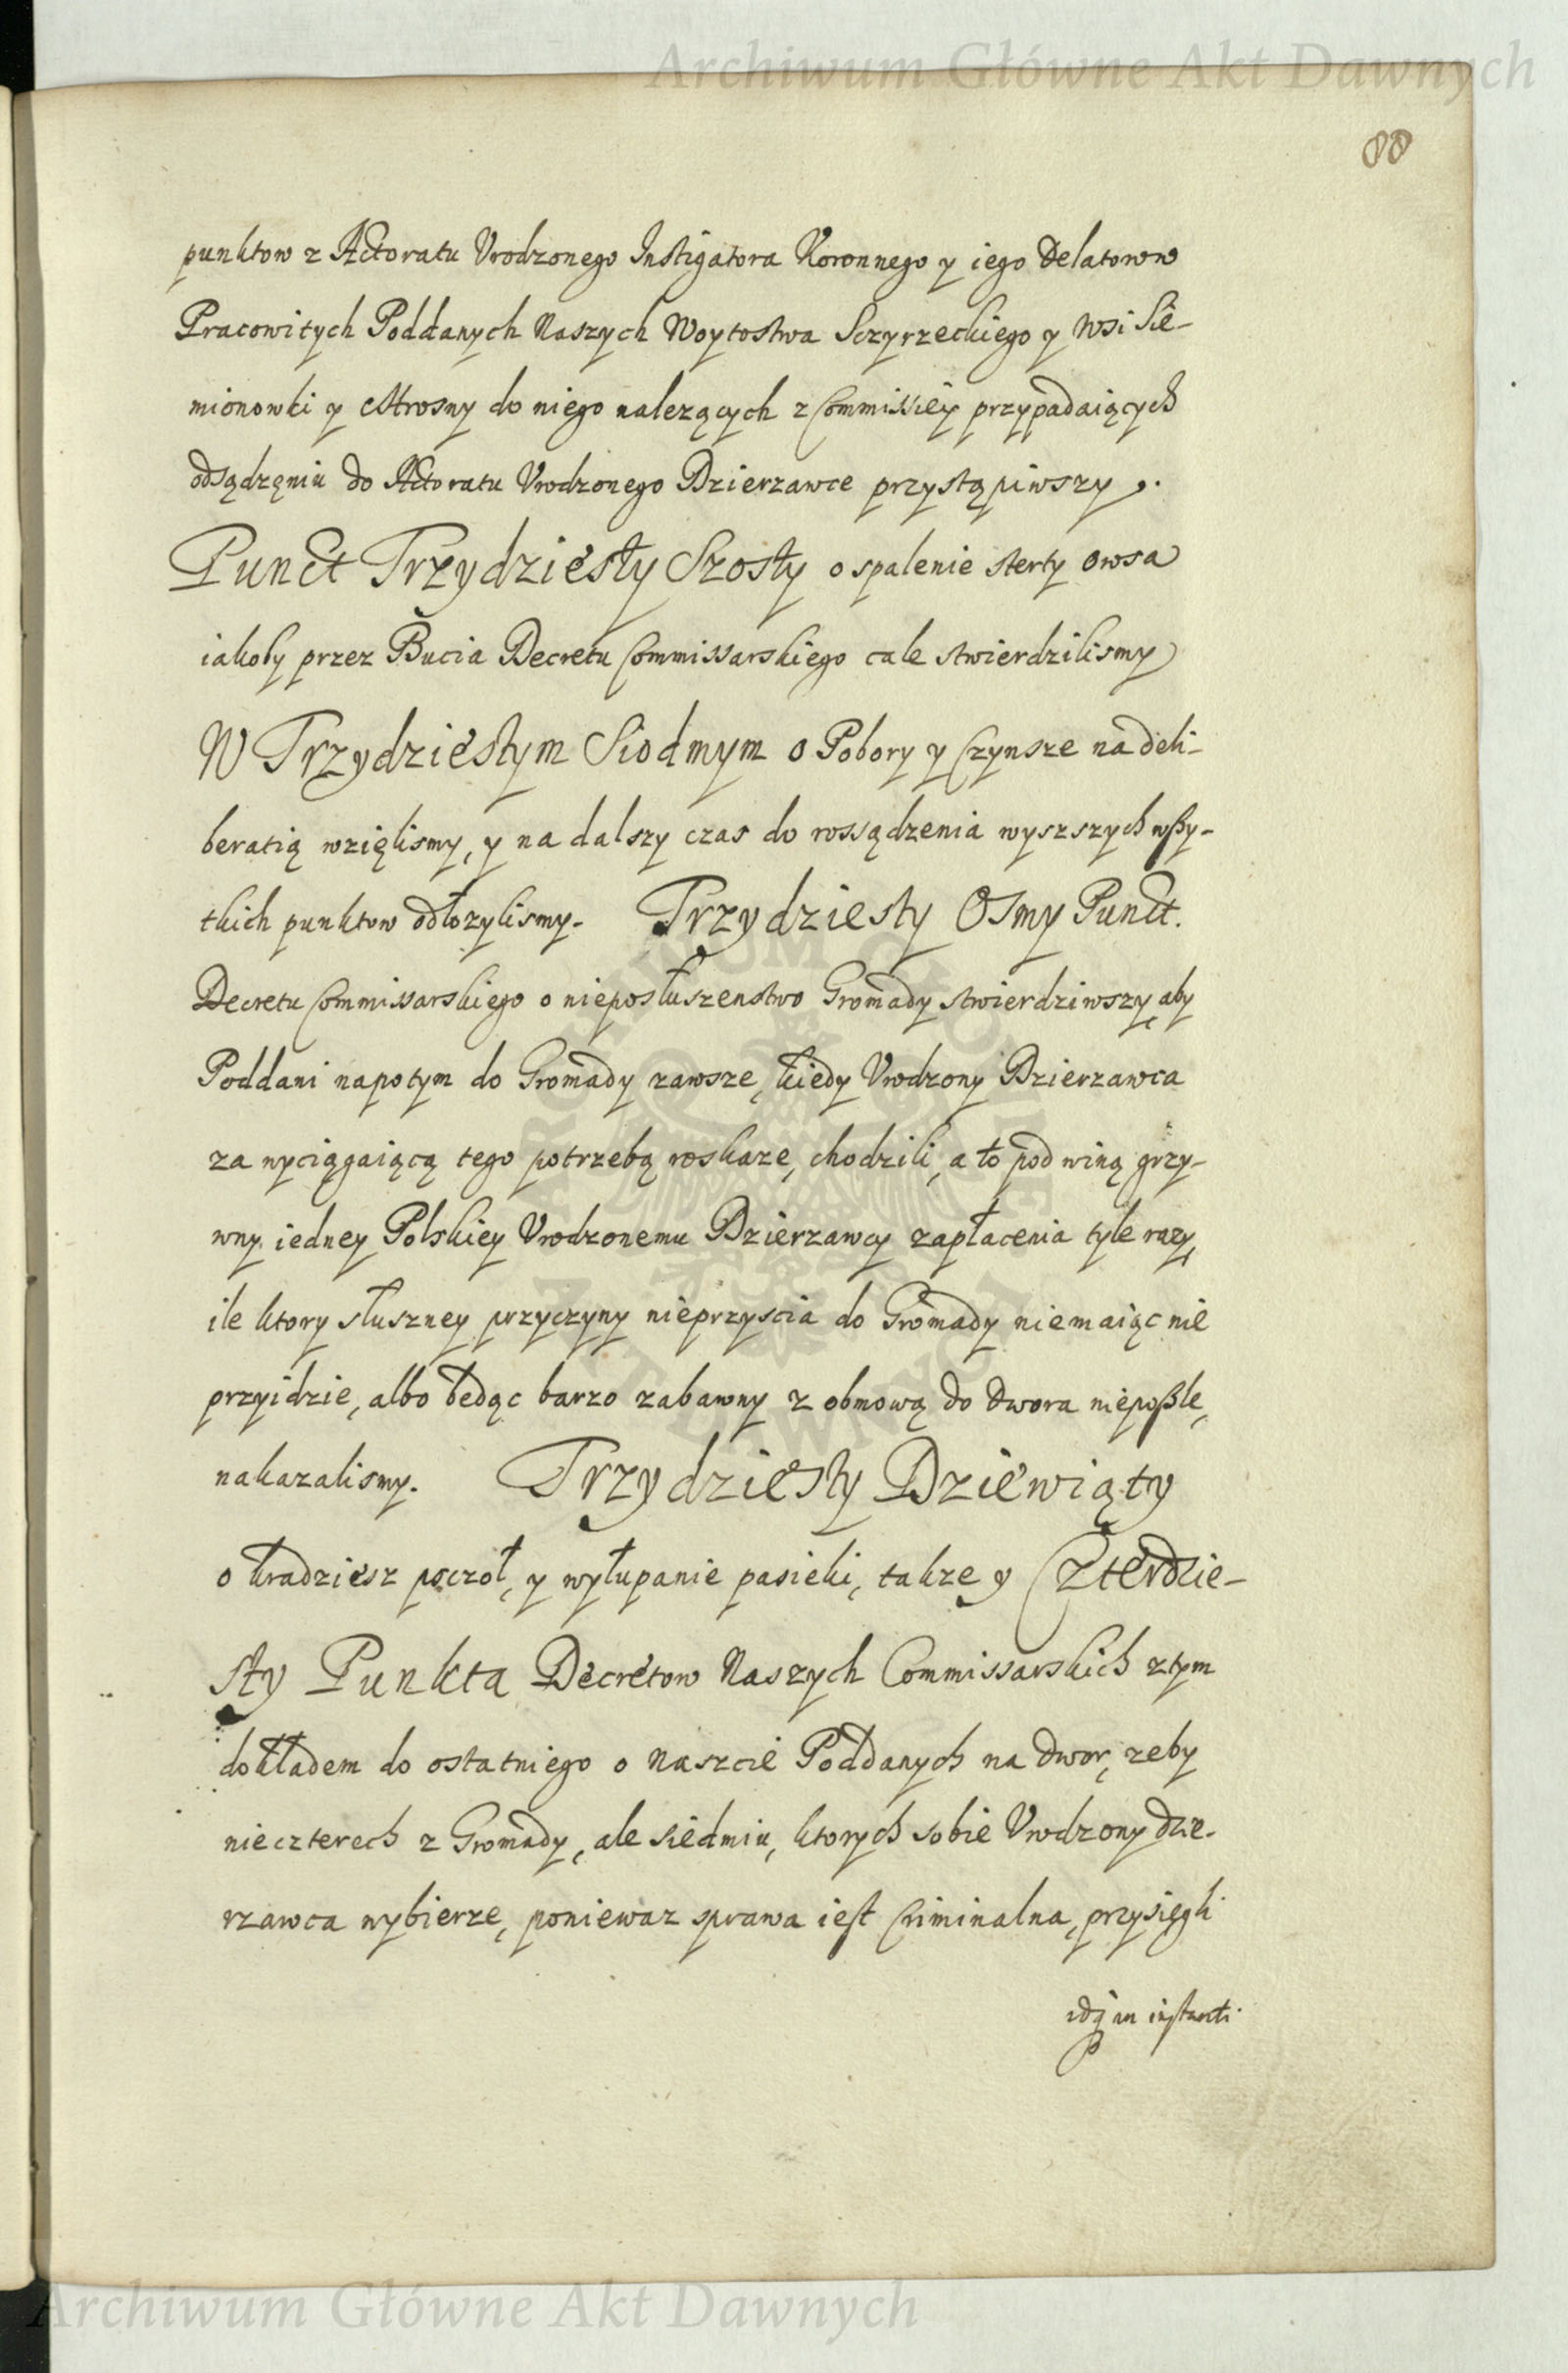 Archiwum Główne Akt Dawnych
88
punktow z Actoratu Vrodzonego Instigatora Koronnego y iego Delatorow
Pracowitych Poddanych Naszych Woytostwa Sczyrzeckiego y Wsi Sie-
mionowki y Ostrosny do niego nalezących z Commissiey przypadaiących
odsądzęniu do Actoratu Vrodzonego Dzierzawce przystąpiwszy,.
Punct Trzydziesty Szosty o spalenie sterty owsa
iakoby przez Bucia Decretu Commissarskiego cale stwierdzilismy
W Trzydziestym Siodmym o Pobory y Czynsze na deli-
beratią wzięlismy, y na dalszy czas do rossądzenia wyszszych wßy-
tkich punktow odłozylismy. Trzydziesty Osmy Punct.
Decretu Commissarskiego o nieposłuszenstwo Gromady stwierdziwszy, aby
Poddani napotym do Gromady zawsze, kiedy Vrodzony Dzierzawca
za wyciągaiącą tego potrzebą roskaze, chodzili, a to pod winą grzy-
wny iedney Polskiey Vrodzonemu Dzierzawcy zapłacenia tyle razy,
ile ktory słuszney przyczyny nieprzyscia do Gromady niemaiąc nie
przyidzie, albo będąc barzo zabawny z obmową do Dwora niepoßle,
nakazalismy. Trzydziesty Dziewiąty
o kradziesz pczoł, y wyłupanie pasieki, takze y Czterdzie-
sty Punkta Decretow Naszych Commissarskich z tym
dokładem do ostatniego o naszcie Poddanych na Dwor, zeby
nie czterech z Gromady, ale siedmiu, ktorych sobie Vrodzony Dzie-
rzawca wybierze, poniewaz sprawa iest Criminalna, przysięgli
Archiwum Główne Akt Dawnych